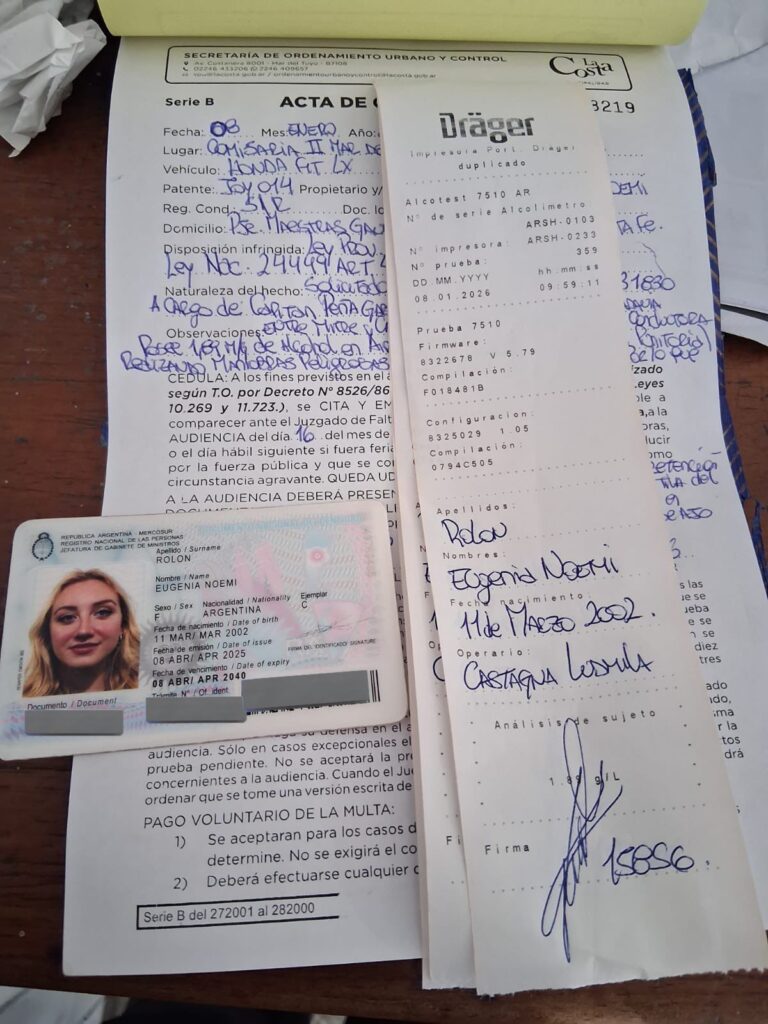 SECRETARÍA DE ORDENAMIENTO URBANO Y CONTROL
Av. Costanera 8001 - Mar del Tuyú - B7108
02246 433206 02246 409657
/ ordenamientourbanoycontrol@lacosta.gob.ar
La Costa
Serie B ACTA DE
3219
Fecha: 08 Mes ENERO Año:
Lugar: COMISARIA II MAR DE
Vehículo: HONDA FIT LX
Patente: JOY 014 Propietario y/
Reg. Cond.: S/R Doc. Id
Domicilio: PJE. MAESTRAS
Disposición infringida: LEY PROV.
LEY NAC. 24449 ART.
Naturaleza del hecho: SOLICITADO
A CARGO DE CAPITAN PEÑA
Observaciones: ENTRE MITRE Y
POSEE 1,89 DE ALCOHOL EN
REALIZANDO MANIOBRAS PELIGROSAS
CEDULA: A los fines previstos en el a
según T.O. por Decreto N° 8526/86
10.269 y 11.723.), se CITA Y EM
comparecer ante el Juzgado de Falt
AUDIENCIA del día 16 del mes de
o el día hábil siguiente si fuera feria
por la fuerza pública y que se co
circunstancia agravante. QUEDA UD
A LA AUDIENCIA DEBERÁ PRESEN
NOEMI
TA FE.
31830
CONDUCTORA
DE LO QUE
izado
Leyes
ble a
a, a la
oras,
lucir
como
RETENCION
DEL
Dräger
Impresora Port. Dräger
duplicado
Alcotest 7510 AR
N° de serie Alcolimetro
ARSH-0103
N° impresora: ARSH-0233
N° prueba: 359
DD.MM.YYYY hh:mm:ss
08.01.2026 09:59:11
Prueba 7510
Firmware:
8322678 V 5.79
Compilación:
F018481B
Configuracion:
8325029 1.05
Compilación:
0794C505
Apellidos:
ROLON
Nombres:
EUGENIA NOEMI
Fecha nacimiento:
11 de MARZO 2002.
Operario:
CASTAGNA LUDMILA
Análisis de sujeto
1.89 g/L
Firma
15856.
REPUBLICA ARGENTINA - MERCOSUR
REGISTRO NACIONAL DE LAS PERSONAS
JEFATURA DE GABINETE DE MINISTROS
Apellido / Surname
ROLON
Nombre / Name
EUGENIA NOEMI
Sexo / Sex Nacionalidad / Nationality Ejemplar
F ARGENTINA C
Fecha de nacimiento / Date of birth
11 MAR/ MAR 2002
Fecha de emisión / Date of issue
08 ABR/ APR 2025
FIRMA DEL IDENTIFICADO/ SIGNATURE
Fecha de vencimiento / Date of expiry
08 ABR/ APR 2040
Documento / Document Trámite N° / Of. ident.
su defensa en el a
audiencia. Sólo en casos excepcionales el
prueba pendiente. No se aceptará la pr
concernientes a la audiencia. Cuando el Jue
ordenar que se tome una versión escrita de
PAGO VOLUNTARIO DE LA MULTA:
1) Se aceptaran para los casos d
determine. No se exigirá el co
2) Deberá efectuarse cualquier c
Serie B del 272001 al 282000
las
que se
ueba
se
n se
diez
tres
ado
do,
ma
r la
tos
drá